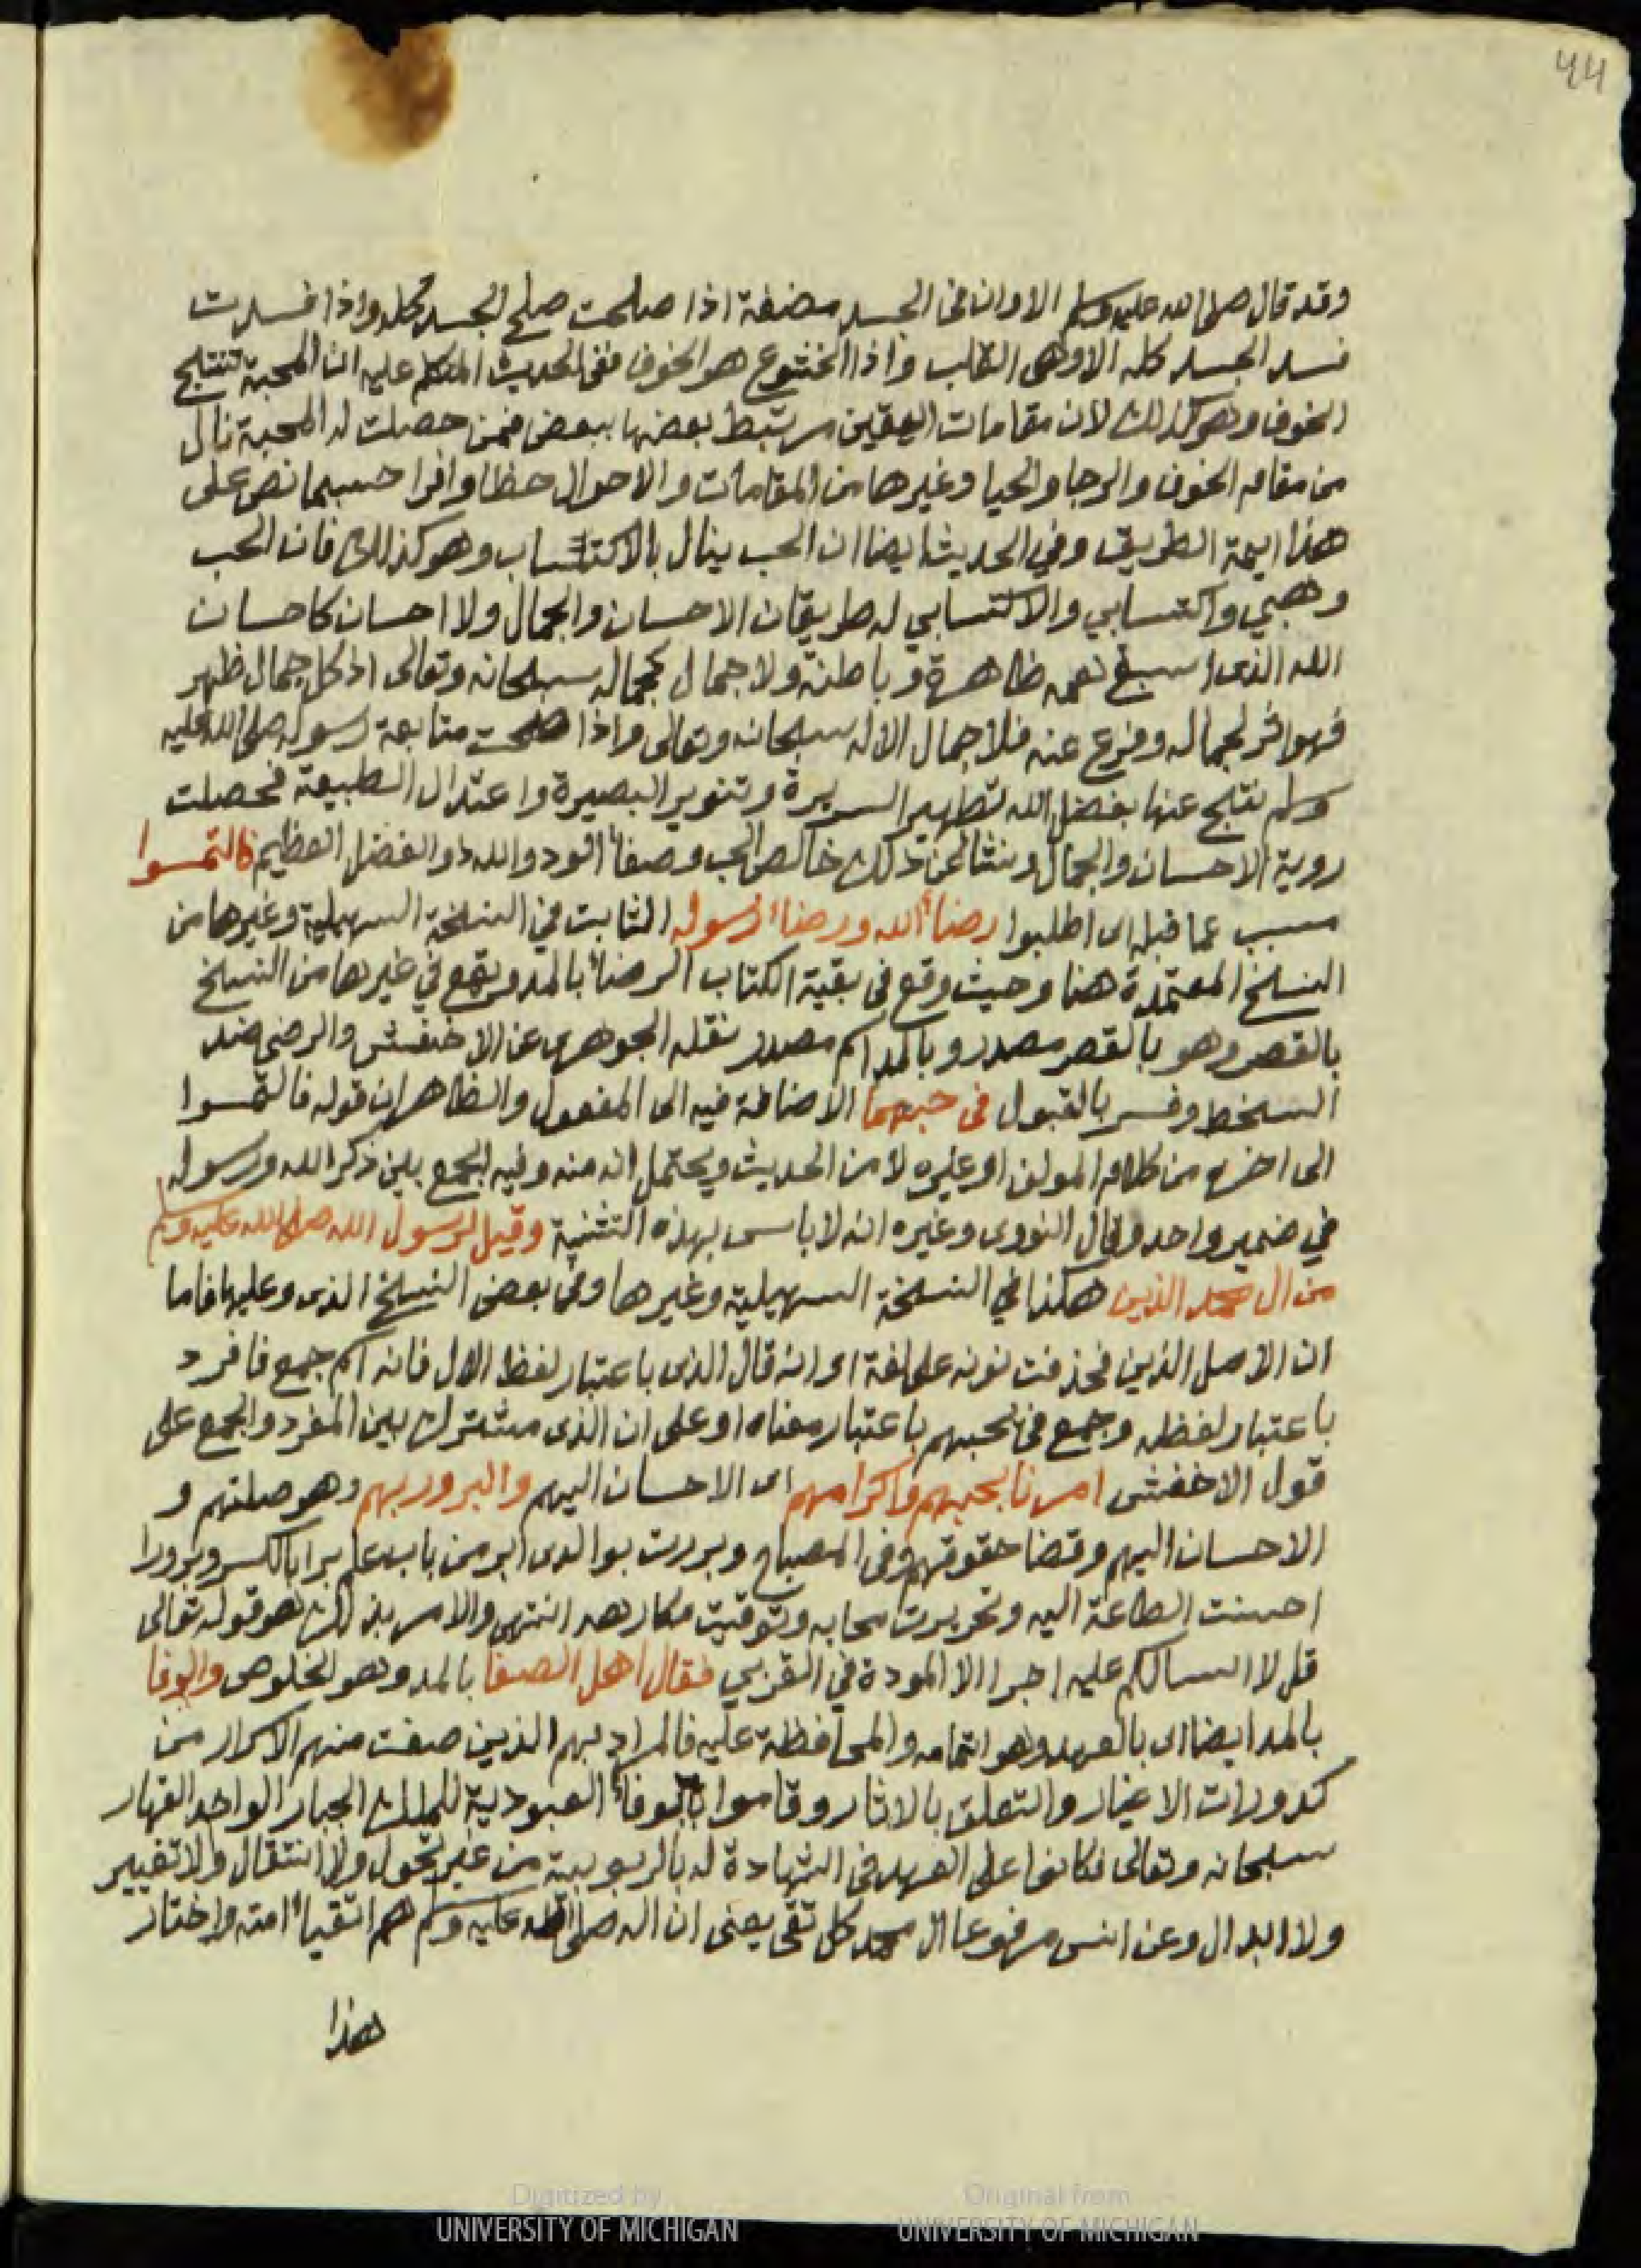 44
وقد قال صلى الله عليه وسلم الا وان فى الجسد مضغة اذا صلحت صلح الجسد كله واذا فسدت
فسد الجسد كله الا وهى القلب واذا الخشوع هو الخوف ففى الحديث المتكلم عليه ان المحبة تنتج
الخوف وهو كذلك لان مقامات اليقين مرتبط بعضها ببعض فمن حصلت له المحبة نال
من مقام الخوف والرجا والحيا وغيرها من المقامات والاحوال حظا وافرا حسبما نص على
هذا ايمة الطريق وفي الحديث ايضا ان الحب ينال بالاكتساب وهو كذلك فان الحب
وهبي واكتسابي والاكتسابي له طريقان الاحسان والجمال ولا احسان كاحسان
الله الذى اسبغ نعمه ظاهرة وباطنة ولا جمال كجماله سبحانه وتعالى اذ كل جمال ظهر
فهو اثر لجماله وفرع عنه فلا جمال الا له سبحانه وتعالى واذا صلحت متابعة رسوله صلى الله عليه
وسلم نتج عنها بفضل الله تطهير السريرة وتنوير البصيرة واعتدال الطبيعة فحصلت
روية الاحسان والجمال ونشا عن ذلك خالص الحب وصفاء الود والله ذو الفضل العظيم فالتمسوا
مسبب عما قبله اى اطلبوا رضاء الله ورضاء رسوله الثابت في النسخة السهيلية وغيرها من
النسخ المعتمدة هنا وحيث وقع فى بقية الكتاب الرضاء بالمد ويقع في غيرها من النسخ
بالقصر وهو بالقصر مصدر وبالمد اسم مصدر نقله الجوهرى عن الاخفش والرضى ضد
السخط وفسر بالقبول فى حبهما الاضافة فيه الى المفعول والظاهر ان قوله فالتمسوا
الى اخره من كلام المولف او غيره لا من الحديث ويحتمل انه منه وفيه الجمع بين ذكر الله ورسوله
في ضمير واحد وقال النووى وغيره انه لا باس بهذه التثنية وقيل لرسول الله صلى الله عليه وسلم
من ال محمد الذين هكذا في النسخة السهيلية وغيرها وفى بعض النسخ الذى وعليها فاما
ان الاصل الذين فحذفت نونه على لغة او انه قال الذى باعتبار لفظ الال فانه اسم جمع فافرد
باعتبار لفظه وجمع فى بحبهم باعتبار معناه او على ان الذى مشترك بين المفرد والجمع على
قول الاخفش امرنا بحبهم واكرامهم اى الاحسان اليهم والبرور بهم وهو صلتهم و
الاحسان اليهم وقضا حقوقهم وفى المصباح وبررت بوالدى ابر من باب علم برا بالكسر وبرورا
احسنت الطاعة اليه وتحريت محابه وتوقيت مكارهه انتهى والامر بذلك هو قوله تعالى
قل لا اسالكم عليه اجرا الا المودة في القربي فقال اهل الصفا بالمد وهو الخلوص والوفا
بالمد ايضا اى بالعهد وهو اتمامه والمحافظة عليه فالمراد بهم الذين صفت منهم الاسرار من
كدورات الاغيار والتعلق بالاثار وقاموا بالوفاء العبودية للملك الجبار الواحد القهار
سبحانه وتعالى فكانوا على العهد فى الشهادة له بالربوبية من غير تحول ولا انتقال ولا تغيير
ولا ابدال وعن انس مرفوعا ال محمد كل تقى يعنى ان اله صلى الله عليه وسلم هم اتقياء امته واختار
هذا
Digitized by
UNIVERSITY OF MICHIGAN
Original from
UNIVERSITY OF MICHIGAN